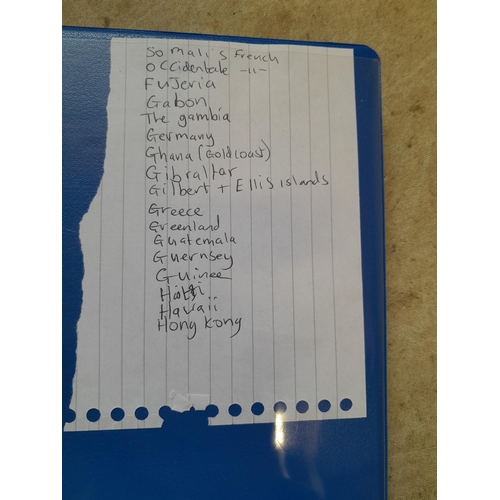 Somali's french
Occidentale -11-
Fujeria
Gabon
The gambia
Germany
Ghana (Gold coast)
Gibraltar
Gilbert + Ellis islands
Greece
Greenland
Guatemala
Guernsey
Guinee
Haiti
Hawaii
Hong Kong